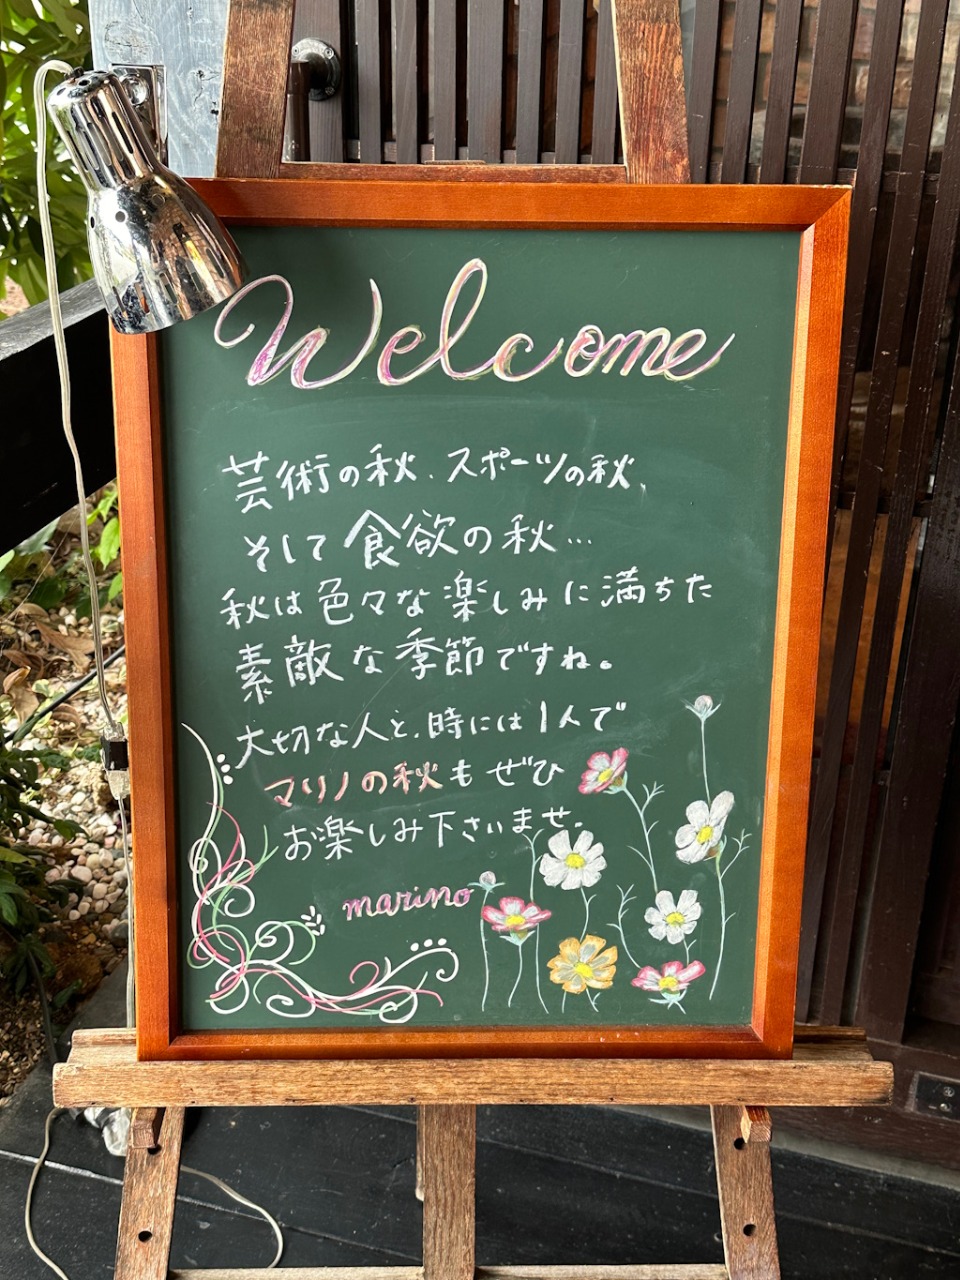 Welcome
芸術の秋、スポーツの秋、
そして食欲の秋…
秋は色々な楽しみに満ちた
素敵な季節ですね。
大切な人と、時には1人で
マリノの秋もぜひ
お楽しみ下さいませ。
marino